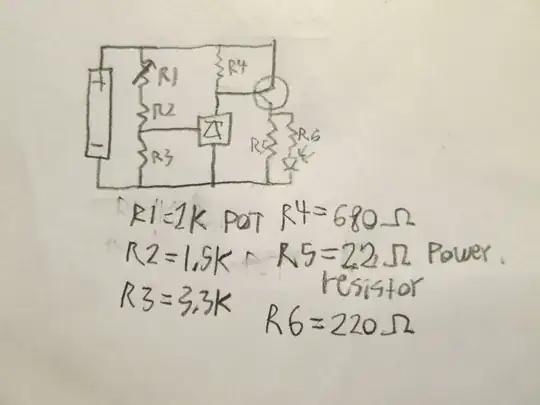 +
-
R1
R2
R3
R4
R5
R6
R1=1K POT R4=680Ω
R2=1.5K R5=22Ω Power
resistor
R3=3.3K
R6=220Ω